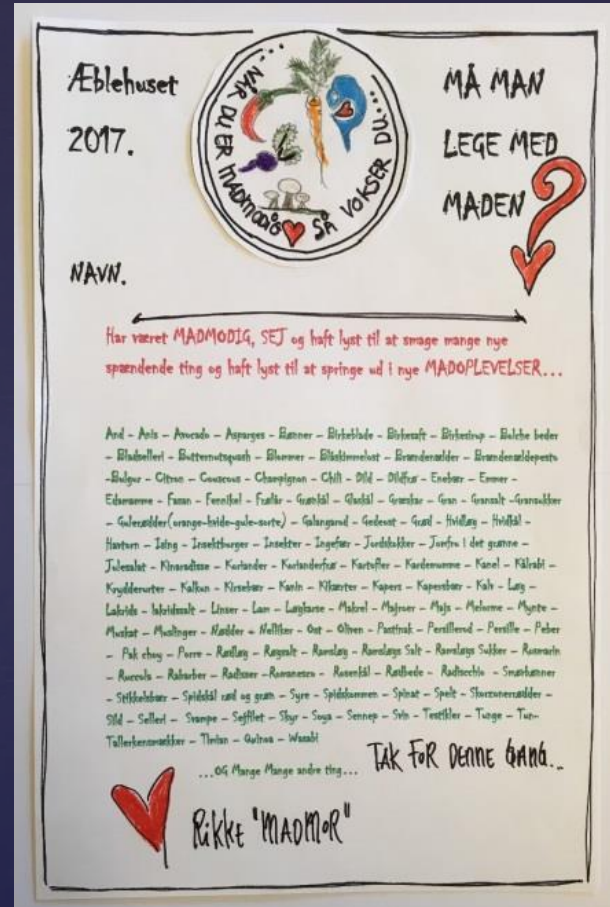 Æblehuset
2017.
...NÅR DU ER MADMODIG SÅ VOKSER DU...
MÅ MAN
LEGE MED
MADEN?
NAVN.
Har været MADMODIG, SEJ og haft lyst til at smage mange nye
spændende ting og haft lyst til at springe ud i nye MADOPLEVELSER...
And – Anis – Avocado – Asparges – Bønner – Birkeblade – Birkesaft – Birkesirup – Bolche beder
– Bladselleri – Butternutsquash – Blommer – Blåskimmelost – Brændenælder – Brændenældepesto
–Bulgur – Citron – Couscous – Champignon – Chili – Dild – Dildfrø – Enebær – Emmer –
Edamamme – Fasan – Fennikel – Frølår – Grønkål – Glaskål – Græskar – Gran – Gransalt –Gransukker
– Gulerødder(orange-hvide-gule-sorte) – Galangarod – Gedeost – Grød – Hvidløg – Hvidkål –
Havtorn – Ising – Insektburger – Insekter – Ingefær – Jordskokker – Jomfru i det grønne –
Julesalat – Kinaradisse – Koriander – Korianderfrø – Kartofler – Kardemomme – Kanel – Kålrabi –
Krydderurter – Kalkun – Kirsebær – Kanin – Kikærter – Kapers – Kapersbær – Kalv – Løg –
Lakrids – lakridssalt – Linser – Lam – Løgkarse – Makrel – Majroer – Majs – Melorme – Mynte –
Muskat – Muslinger – Nødder – Nelliker – Ost – Oliven – Pastinak – Persillerod – Persille – Peber
– Pak choy – Porre – Rødløg – Røgsalt – Ramsløg – Ramsløgs Salt – Ramsløgs Sukker – Rosmarin
– Ruccola – Rabarber – Radisser –Romanesco – Rosenkål – Rødbede – Radicchio – Smørbønner
– Stikkelsbær – Spidskål rød og grøn – Syre – Spidskommen – Spinat – Spelt – Skorzonerrødder –
Sild – Selleri – Svampe – Sejfilet – Skyr – Soya – Sennep – Svin – Testikler – Tunge – Tun–
Tallerkensmækker – Timian – Quinoa – Wasabi
...OG Mange Mange andre ting...
TAK FOR DENNE GANG...
RIKKE "MADMOR"